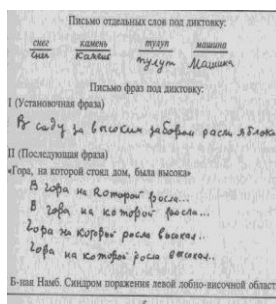 Письмо отдельных слов под диктовку:
снег камень тулуп машина
снег камень тулут Машина
Письмо фраз под диктовку:
I (Установочная фраза)
В саду за высоким забором росли яблоки
II (Последующая фраза)
«Гора, на которой стоял дом, была высока»
В гора на которой росла...
В гора на которой росли...
Гора на которой росла высокая..
Гора на которой росла высокая..
Б-ная Намб. Синдром поражения левой лобно-височной област